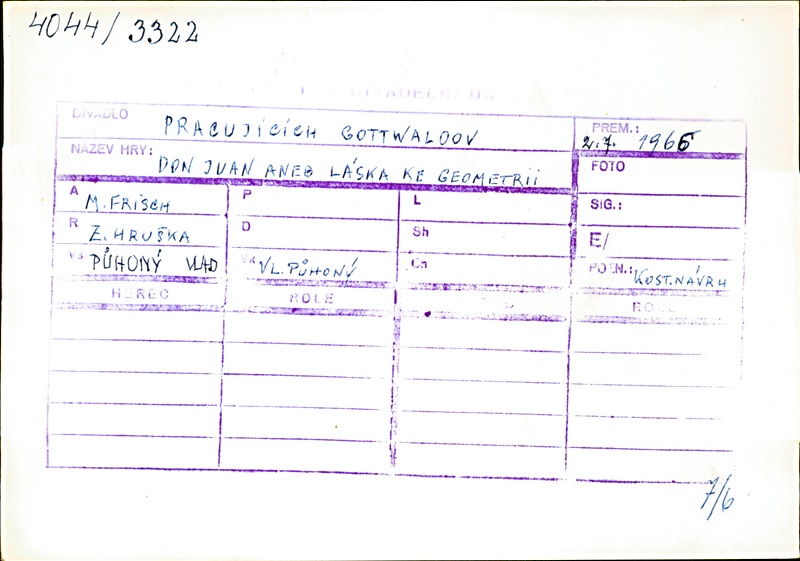 4044/3322
DIVADELNÍ
DIVADLO PRACUJÍCÍCH GOTTWALDOV
PREM.: 2.7. 1966
NÁZEV HRY: DON JUAN ANEB LÁSKA KE GEOMETRII
FOTO
A M. FRISCH
P
L
SIG.:
R Z. HRUŠKA
D
Sh
E/
VS PŮHONÝ VLAD
VK VL. PŮHONÝ
Ch
POZN.: KOST. NÁVRH
HEREC
ROLE
7/6